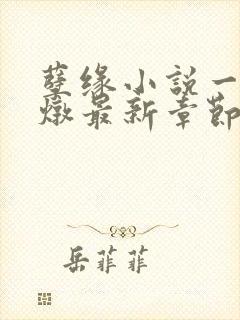 孽缘小说一
燉最新章節
岳菲菲